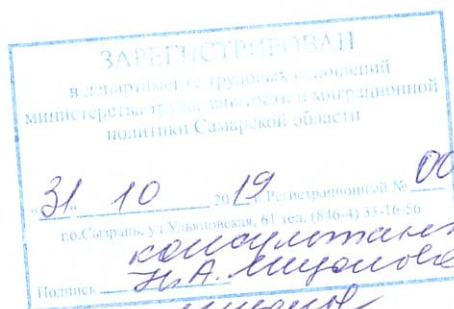 ЗАРЕГИСТРИРОВАН
в департаменте трудовых отношений
министерства труда, занятости и миграционной
политики Самарской области
"31" 10 2019 г. Регистрационный № 00
г.о.Сызрань, ул.Ульяновская, 61 тел. (846-4) 33-16-56
консультант
Подпись Н.А.